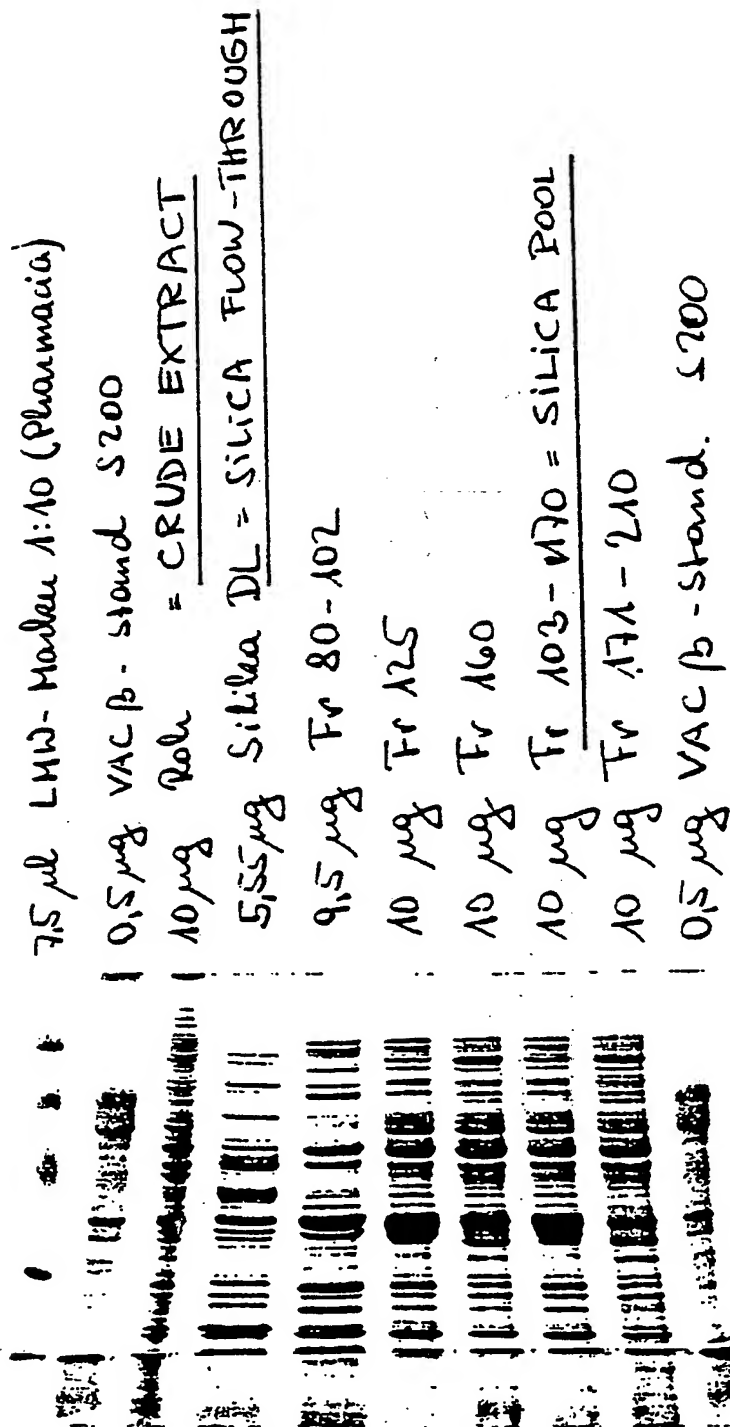 7,5 µl LMW-Marker 1:10 (Pharmacia)
0,5 µg VAC β-Stand S200
10 µg Roh = CRUDE EXTRACT
5,55 µg Silika DL = SILICA FLOW-THROUGH
9,5 µg Fr 80-102
10 µg Fr 125
10 µg Fr 160
10 µg Fr 103-170 = SILICA POOL
10 µg Fr 171-210
0,5 µg VAC β-Stand. S200